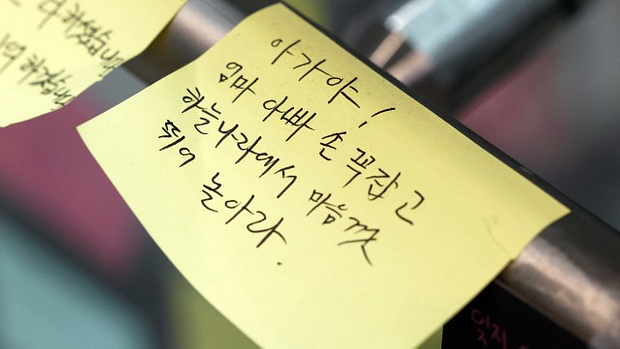 아가야!
엄마 아빠 손 꼭잡고
하늘나라에서 마음껏
뛰어 놀아라.